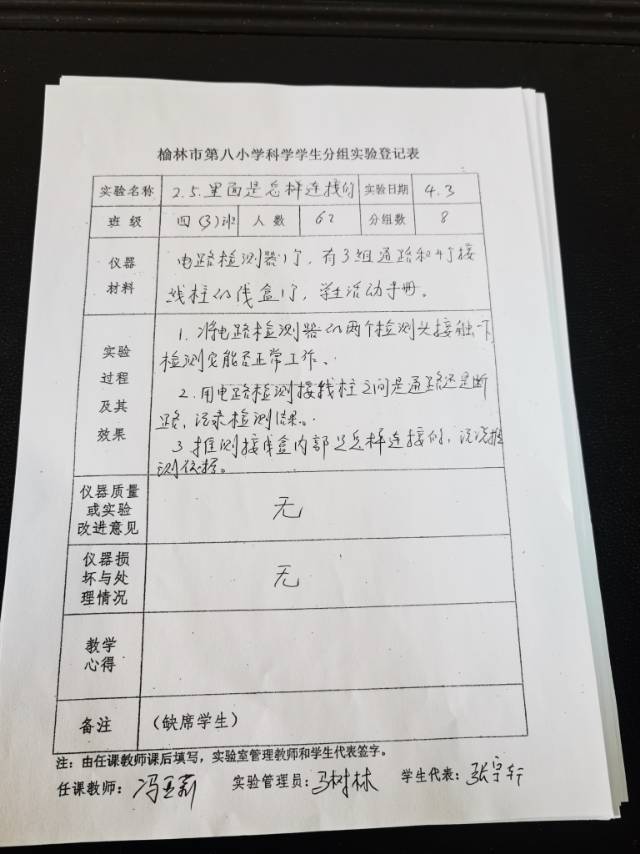 榆林市第八小学科学学生分组实验登记表
实验名称 2.5.里面是怎样连接的 实验日期 4.3
班 级 四(3)班 人 数 62 分组数 8
仪器材料 电路检测器1个,有3组通路和4个接
线柱的线盒1个,学生活动手册。
实验过程及其效果 1.将电路检测器的两个检测头接触一下
检测它能否正常工作、
2.用电路检测接线柱之间是通路还是断
路,记录检测结果。
3.推测接线盒内部是怎样连接的,说说推
测依据。
仪器质量或实验改进意见 无
仪器损坏与处理情况 无
教学心得
备注 (缺席学生)
注:由任课教师课后填写,实验室管理教师和学生代表签字。
任课教师:冯 实验管理员:马树林 学生代表:张宇轩